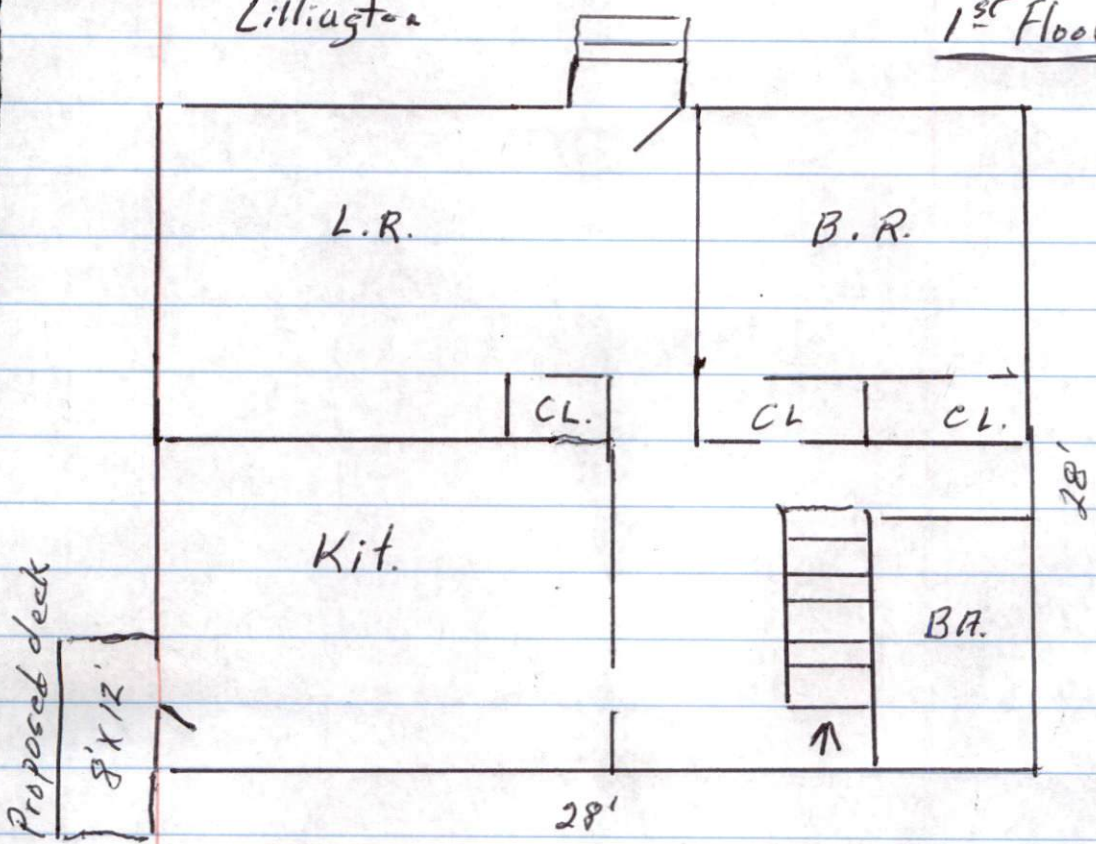 Lillington
1st Floor
L.R.
B.R.
CL.
CL
CL.
28'
Kit.
BA.
Proposed deck
8' x 12'
28'